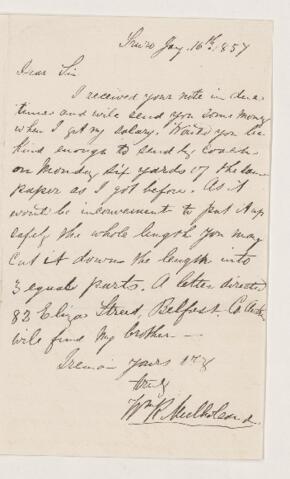 Jany. 16th, 1857
Dear Sir
I received your note in due
time and will send you some money
when I get my salary. Would you be
kind enough to send by coach
on Monday six yards of the same
paper as I got before. As it
would be inconvenient to put it up
safely the whole length you may
cut it down the length into
3 equal parts. A letter directed
82 Eliza Street, Belfast. Co
will find my brother —
I remain yours
truly
Wm. R. Mulholland